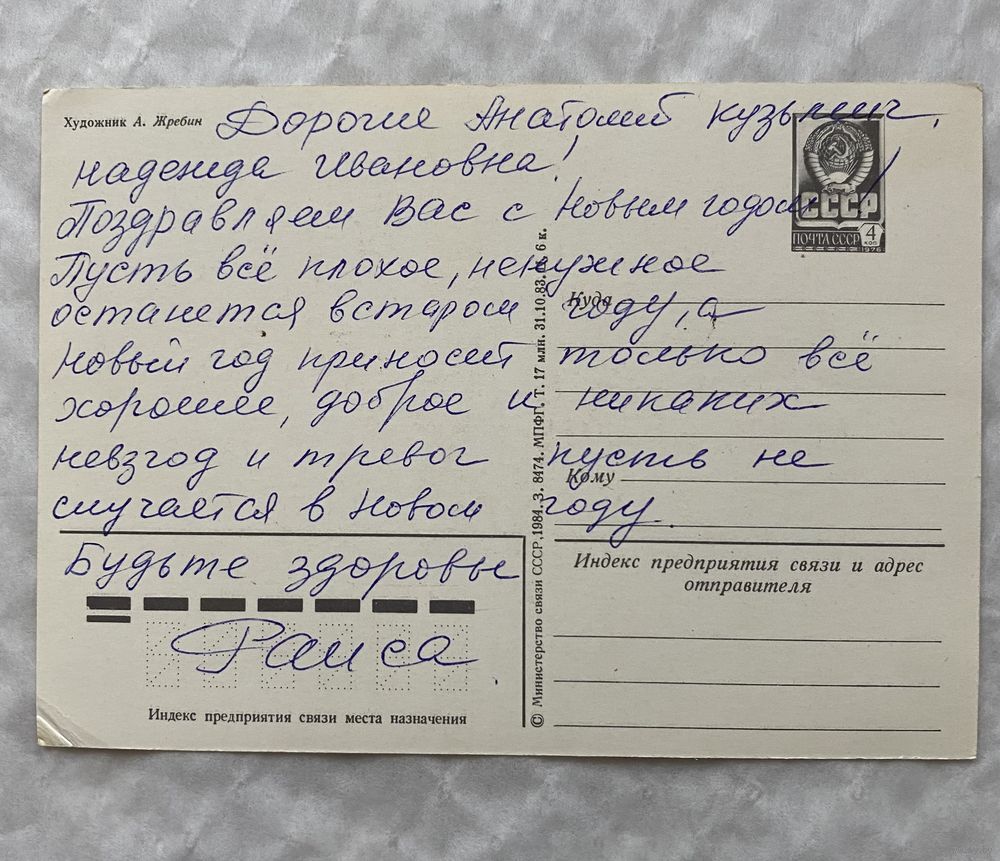 Художник А. Жребин
Дорогие Анатолий Кузьмич,
Надежда Ивановна!
Поздравляем Вас с Новым годом!
Пусть всё плохое, ненужное
останется в старом году, а
Новый год приносит только всё
хорошее, доброе и никаких
невзгод и тревог пусть не
случается в Новом году.
Будьте здоровы
Раиса
СССР
ПОЧТА СССР
4
КОП
1976
Куда
Кому
Индекс предприятия связи и адрес
отправителя
Индекс предприятия связи места назначения
© Министерство связи СССР, 1984. З. 8474. МПФГ. Т. 17 млн. 31.10.83. Ц. 6 к.